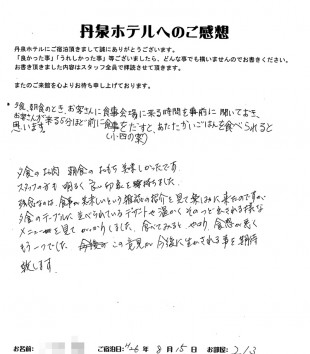 丹泉ホテルへのご感想
丹泉ホテルにご宿泊頂きまして誠にありがとうございます。
「良かった事」「うれしかった事」等ございましたら、どんな事でも構いませんのでお書きください。
お書き頂きました内容はスタッフ全員で拝読させて頂きます。
またのご来館を心よりお待ち申し上げております。
*夕食、朝食のとき、お客さんに食事会場に来る時間を事前に聞いておき、
お客さんが来る5分ほど前に食事をだすと、あたたかいごはんを食べられると
思います。
(小四の案)
夕食のお肉 朝食のおもち 美味しかったです。
スタッフの方も 明るく 良い印象を
食事が美味しいという雑誌の紹介を見て楽しみに来たのですが
夕食のテーブルに並べられている
メニューを見てがっかりしました。食べてみると やはり 食感が悪く
もう一つでした。この意見が今後に生かされる事を期待
致します。
お名前: ご宿泊日:H26年 8月 15日 お部屋: 213